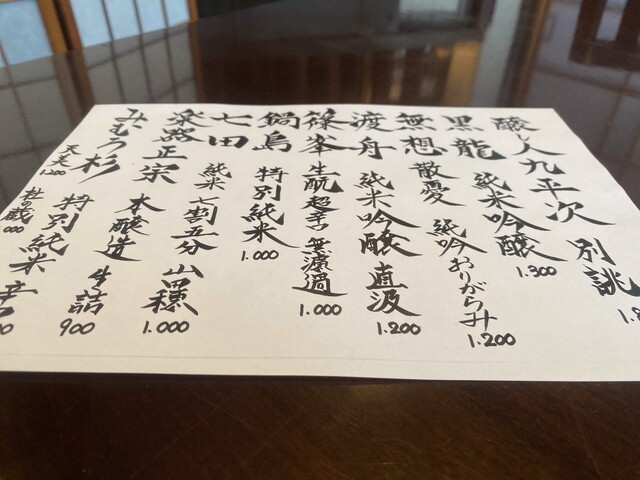 醸し人九平次 別誂
黒龍 純米吟醸 1.300
無想 散憂 純吟おりがらみ 1.200
渡舟 純米吟醸 直汲 1.200
篠峯 生酛 超辛口 無濾過 1.000
鍋島 特別純米 1.000
七田 純米 七割五分 山田穂 1.000
路正宗 本醸造 生詰 900
みむろ杉 特別純米 辛
天美 1.200
杜の蔵